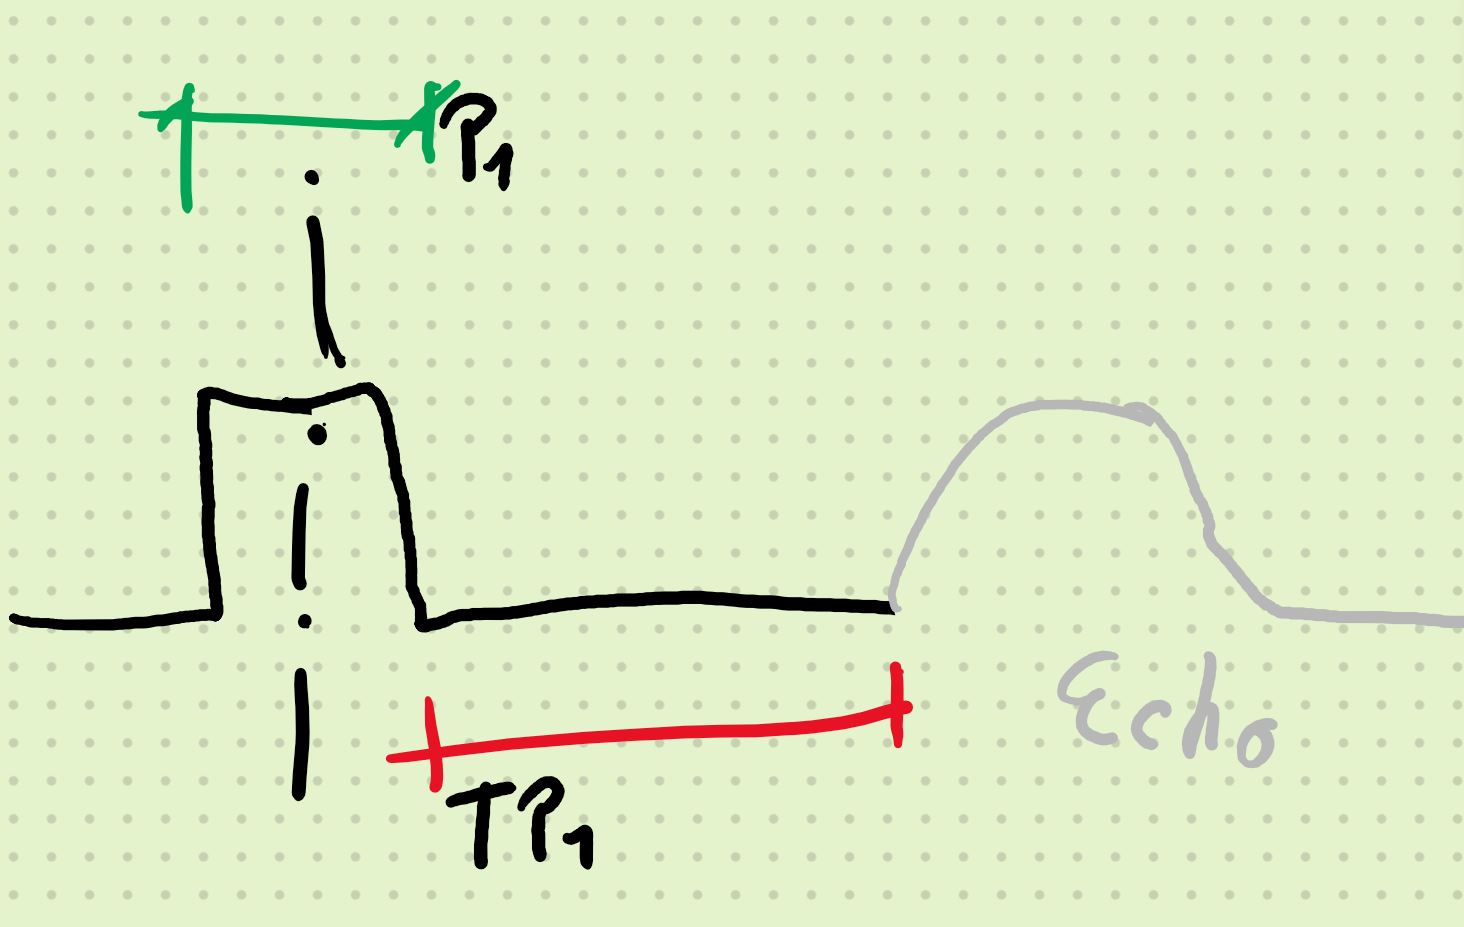 P1
Echo
TP1